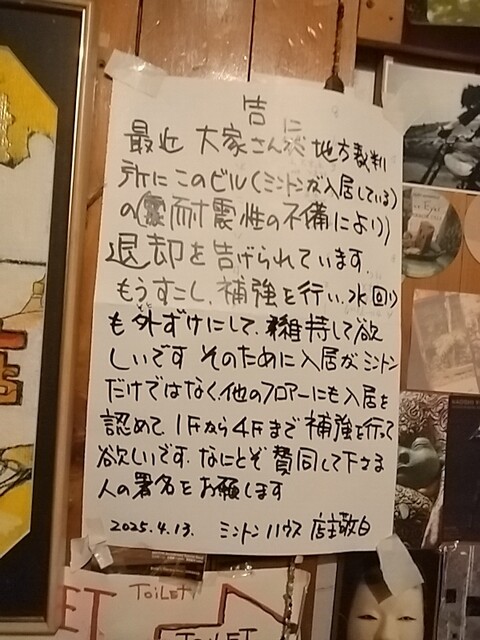 告
最近 大家さんに 地方裁判
所にこのビル(ミントンが入居している)
の(耐震性の不備により)
退却を告げられています.
もうすこし、補強を行い、水回り
も外ずけにして、維持して欲
しいです そのために入居がミントン
だけではなく、他のフロアーにも入居を
認めて、1Fから4Fまで補強を行って
欲しいです. なにとぞ 賛同して下さる
人の署名をお願します
2025.4.13. ミントンハウス 店主敬白
TOILET
TOILET